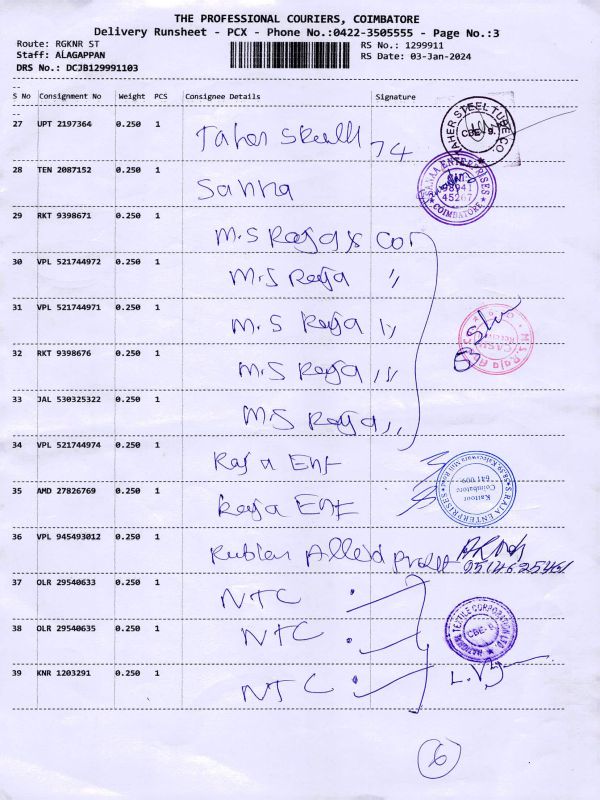 THE PROFESSIONAL COURIERS, COIMBATORE
Delivery Runsheet - PCX - Phone No.:0422-3505555 - Page No.:3
Route: RGKNR ST
RS No.: 1299911
Staff: ALAGAPPAN
RS Date: 03-Jan-2024
DRS No.: DCJB129991103
S No Consignment No Weight PCS Consignee Details Signature
27 UPT 2197364 0.250 1 Taher
TAHER STEEL TUBE CO. CBE-9.
28 TEN 2087152 0.250 1 Sanna
SANAA ENTERPRISES COIMBATORE
29 RKT 9398671 0.250 1 M.S Raja & Co
30 VPL 521744972 0.250 1 M.S Raja "
31 VPL 521744971 0.250 1 M.S Raja "
32 RKT 9398676 0.250 1 M.S Raja "
33 JAL 530325322 0.250 1 M.S Raja "
34 VPL 521744974 0.250 1 Raja Ent
35 AMD 27826769 0.250 1 Raja Ent
S. RAJA ENTERPRISES Kattoor Coimbatore 641 009.
36 VPL 945493012 0.250 1
37 OLR 29540633 0.250 1 NTC
38 OLR 29540635 0.250 1 NTC
NATIONAL TEXTILE CORPORATION LTD CBE-9.
39 KNR 1203291 0.250 1 NTC
6